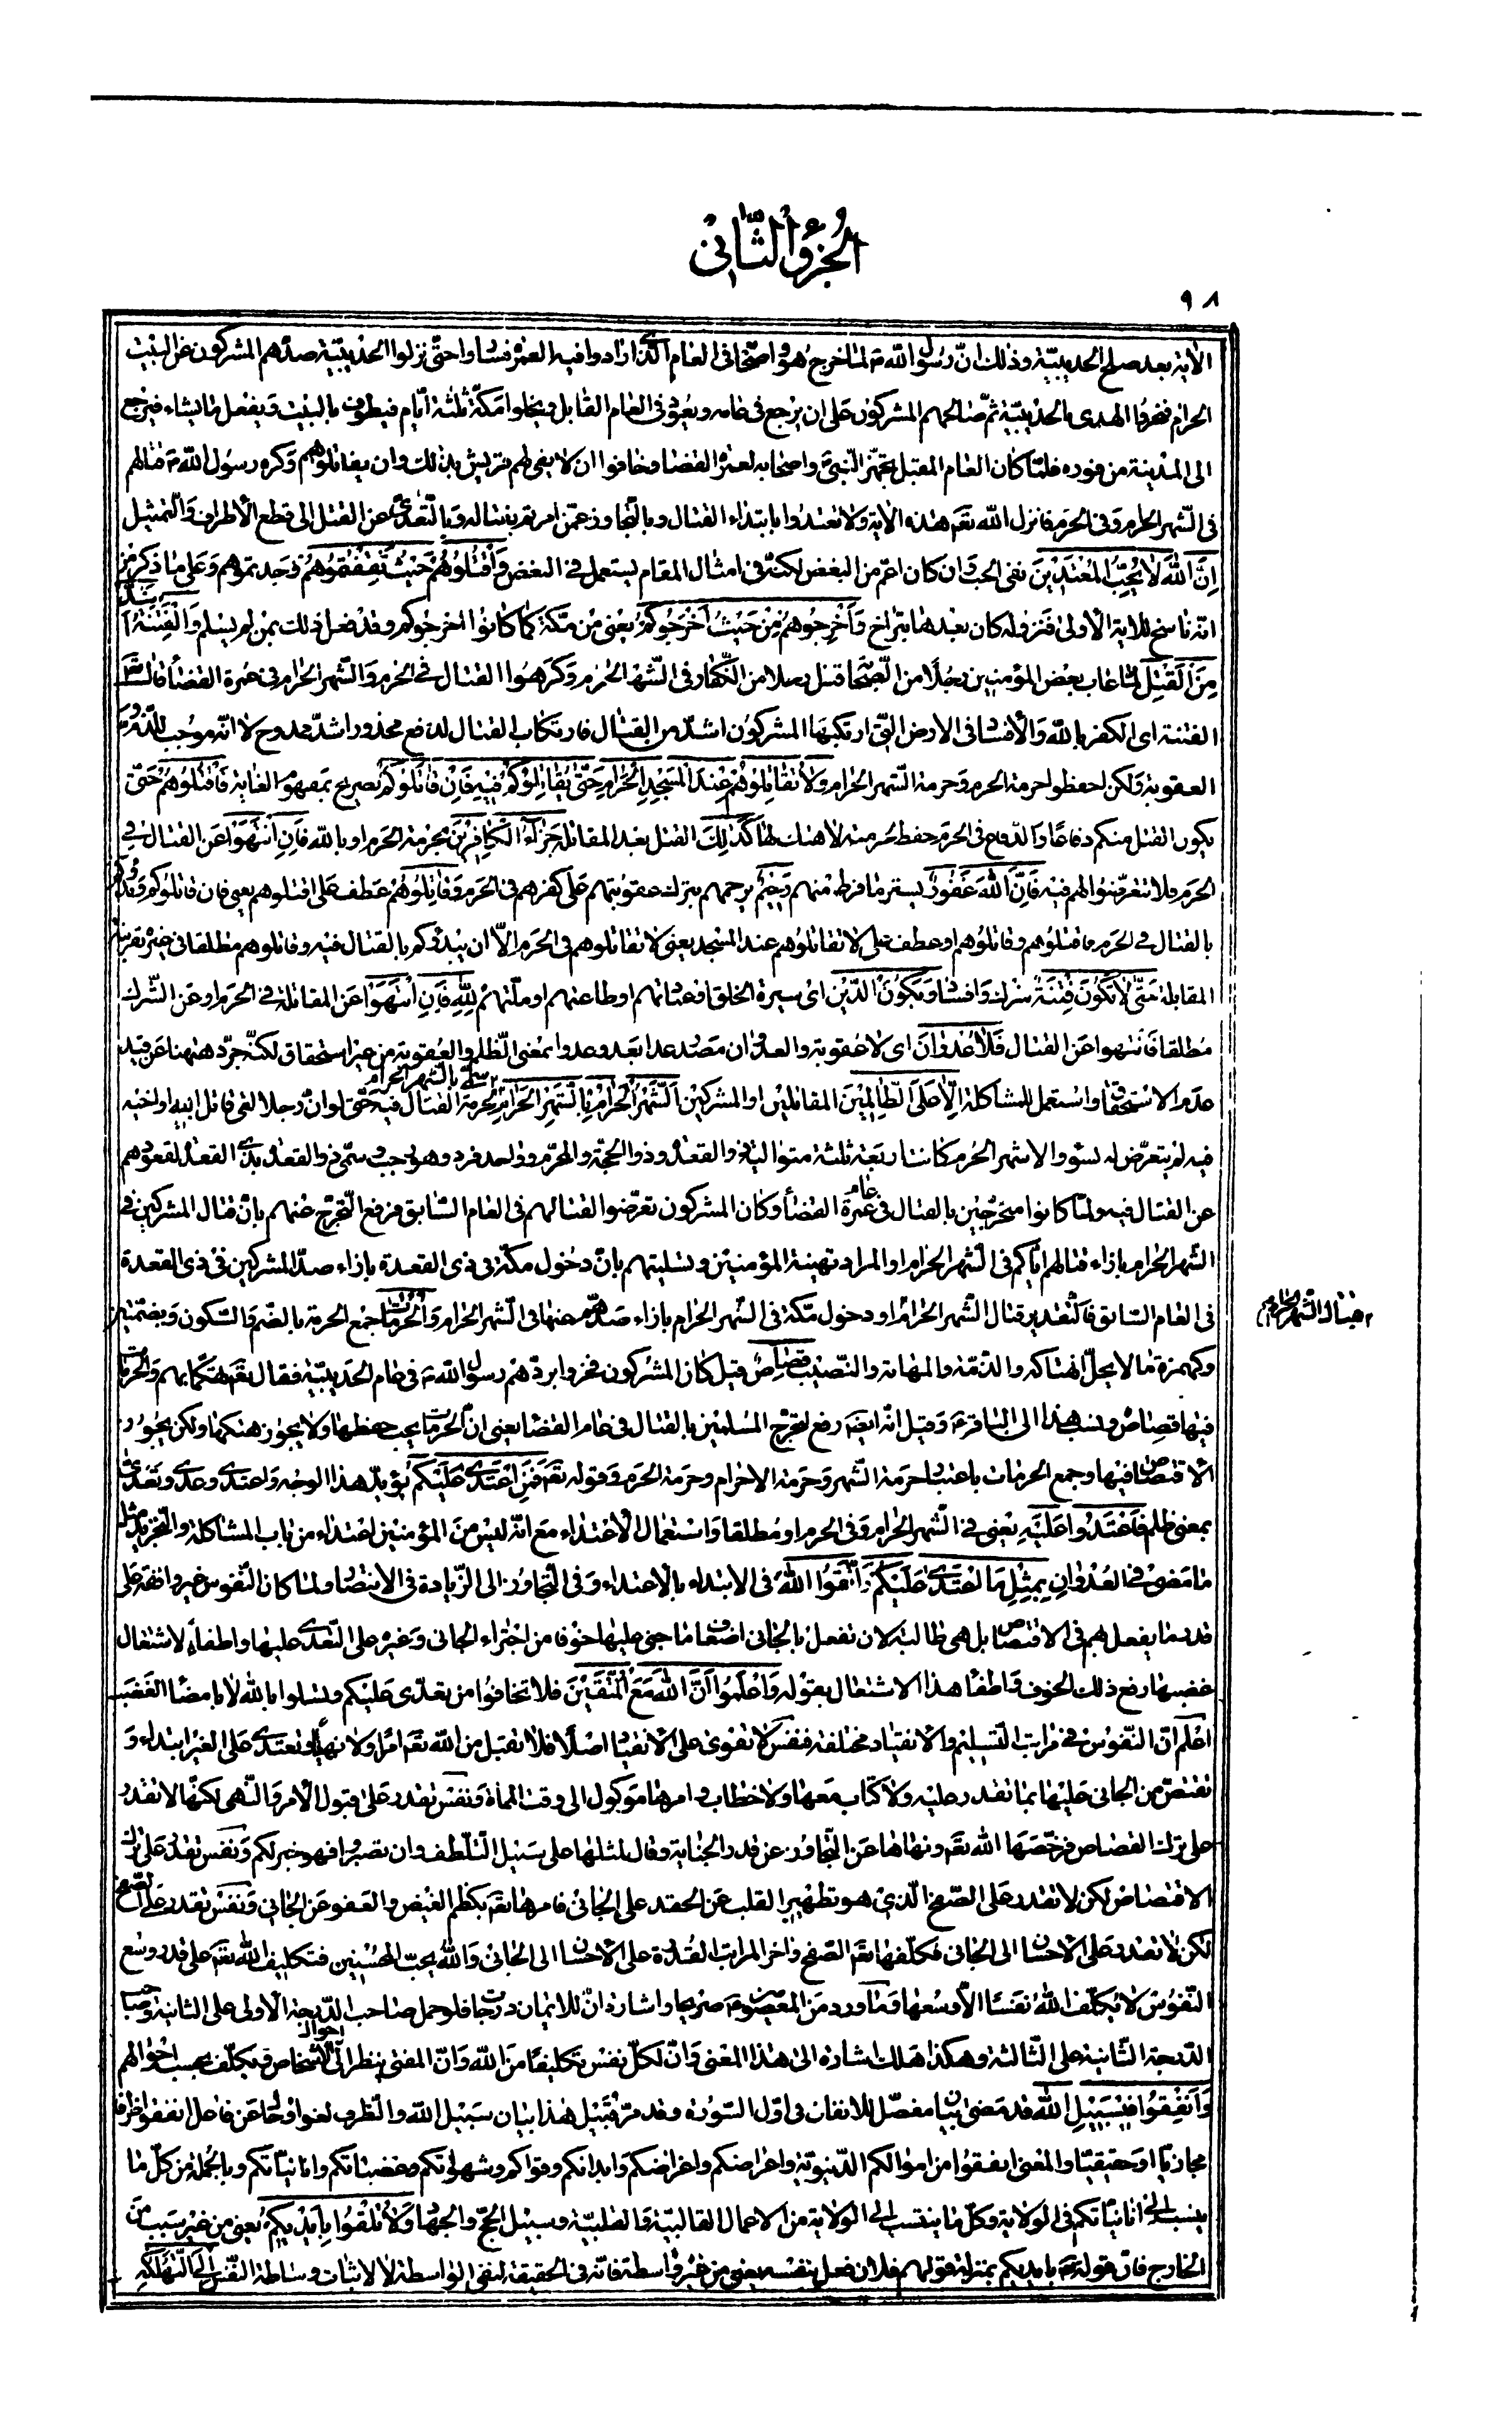 الجزؤ الثانی
٩٨
الاٰية بعد صلح الحديبيّة وذٰلك انّ رسول الله ص لمّا خرج هو واصحابه فى العام الّذى ارادوا فيه العمرة فساروا حتّى نزلوا الحديبيّة صدّهم المشركون عن البيت
الحرام فنحروا الهدى بالحديبيّة ثمّ صالحهم المشركون على ان يرجع فى عامه ويعود فى العام القابل ويخلوا مكّة ثلثة ايّام فيطوف بالبيت ويفعل ما يشاء فيرجع
الى المدينة من فوره فلمّا كان العام المقبل تجهّز النّبىّ واصحابه لعمرة القضاء وخافوا ان لا يفى لهم قريش بذٰلك وان يقاتلوهم وكره رسول الله ص قتالهم
فى الشّهر الحرام وفى الحرم فانزل الله تعم هذه الاٰية ولا تعتدوا بابتداء القتال وبالتّجاوز عمّن امرتم بقتاله وبالتّعدّى عن القتل الى قطع الأطراف والتّمثيل
اِنَّ اللهَ لاٰ يُحِبُّ المُعْتَدِيْنَ نفى الحبّ وان كان اعمّ من البغض لكنّه فى امثال المقام يستعمل فى البغض وَاقْتُلُوهُمْ حَيْثُ ثَقِفْتُمُوُهُمْ وجدتموهم وعلى ما ذكر من
انّه ناسخ للاٰية الأولى فنزوله كان بعدها بتراخ وَاَخْرِجُوهُمْ مِنْ حَيْثُ اَخْرَجُوكُمْ يعنى من مكّة كما كانوا اخرجوكم وقد فعل ذٰلك بمن لم يسلم وَالْفِتْنَةُ اَشَدُّ
مِنَ الْقَتْلِ لمّا عاب بعض المؤمنين رجلًا من الصّحابة قتل رجلا من الكفّار فى الشّهر الحرام وكرهوا القتال فى الحرم والشّهر الحرام فى عمرة القضاء قال تعم
الفتنة اى الكفر بالله والأفساد فى الارض الّتى ارتكبها المشركون اشدّ من القتال فارتكاب القتال لدفع محذور اشدّ ممدوح لا انّه موجب للذّم و
العقوبة ولكن احفظوا حرمة الحرم وحرمة الشّهر الحرام وَلاٰ تُقٰاتِلُوهُمْ عِنْدَ المَسْجِدِ الْحَرٰامِ حَتّٰى يُقٰاتِلُوكُمْ فِيْهِ فَاِنْ قٰاتَلُوكُمْ تصريح بمفهوم الغاية فَاقْتُلُوهُمْ حتّى
يكون القتل منكم دفاعًا والدّفاع فى الحرم حفظ لحرمته لا هتك لها كَذٰلِكَ القتل بعد المقاتلة جَزٰاءُ الكٰافِرِيْنَ بحرمة الحرم او بالله فَاِنِ انْتَهَوْا عن القتال فى
الحرم فلا تتعرّضوا لهم فيه فَاِنَّ اللهَ غَفُورٌ يستر ما فرط منهم رَحِيْمٌ يرحمهم بترك عقوبتهم على كفرهم فى الحرم وَقٰاتِلُوُهُمْ عطف على اقتلوهم يعنى فان قاتلوكم وبدؤكم
بالقتال فى الحرم فاقتلوهم وقاتلوهم او عطف على لا تقاتلوهم عند المسجد يعنى لا تقاتلوهم فى الحرم الّا ان يبدؤكم بالقتال فيه وقاتلوهم مطلقا فى غيره بقرينة
المقابلة حَتّٰى لاٰ تَكُونَ فِتْنَةٌ شرك وافساد وَيَكُونَ الدّيْنُ اى سيرة الخلق او عباداتهم او طاعتهم او ملّتهم لِلّٰهِ فَاِنِ انْتَهَوْا عن المقاتلة فى الحرم او عن الشّرك
مطلقا فانتهوا عن القتال فَلاٰ عُدْوٰانَ اى لا عقوبة والعدوان مصدر عدا يعدو عدوا بمعنى الظّلم والعقوبة من غير استحقاق لكنّه جرّد هٰهنا عن قيد
عدم الاستحقاق واستعمل للمشاكلة اِلّاٰ عَلَى الظّٰالِمِيْنَ المقاتلين او المشركين اَلشَّهْرُ الْحَرٰامُ بِالشَّهْرِ الْحَرٰامِ سمّى بالشهر الحرام لحرمة القتال فيه حتّى لو انّ رجلا لقى قاتل ابيه او اخيه
فيه لم يتعرّض له بسوء والاشهر الحرم كانت اربعة ثلثة متوالية ذو القعدة وذو الحجّة والمحرّم وواحد فرد وهو رجب وسمّى ذو القعدة بذى القعدة لقعودهم
عن القتال فيه ولمّا كانوا متحرّجين بالقتال فى عام عمرة القضاء وكان المشركون تعرّضوا لقتالهم فى العام السّابق فرفع التّحرّج عنهم بانّ قتال المشركين فى
الشّهر الحرام بازاء قتالهم ايّاكم فى الشّهر الحرام او المراد تهنية المؤمنين وتسليتهم بانّ دخول مكّة فى ذى القعدة بازاء صدّ المشركين فى ذى القعدة
فى العام السّابق فالتّقدير قتال الشّهر الحرام او دخول مكّة فى الشّهر الحرام بازاء صدّهم عنها فى الشّهر الحرام وَالْحُرُمٰاتُ جمع الحرمة بالضّم والسّكون وبضمّتين
قتال الشهر الحرام
وكهمزة ما لا يحلّ انتهاكه والذّمّة والمهابة والنّصيب قِصٰاصٌ قيل كان المشركون فخروا بردّهم رسول الله ص فى عام الحديبيّة فقال تعم تهكّما بهم والحرمات
فيها قصاص ونسب هذا الى الباقر ع وقيل انّه ايضا رفع لتحرّج المسلمين بالقتال فى عام القضاء يعنى انّ الحرمات يجب حفظها ولا يجوز هتكها ولكن يجوز
الاقتصاص فيها وجمع الحرمات باعتبار حرمة الشّهر وحرمة الاحرام وحرمة الحرم وقوله تعم فَمَنِ اعْتَدٰى عَلَيْكُمْ يؤيّد هذا الوجه واعتدى وعدى وتعدّى
بمعنى ظلم فَاعْتَدُوا عَلَيْهِ يعنى فى الشّهر الحرام وفى الحرم او مطلقا واستعمال الأعتداء مع انّه ليس من المؤمنين اعتداء من باب المشاكلة والتّجريد مثل
ما مضى فى العدوان بِمِثْلِ مَا اعْتَدٰى عَلَيْكُمْ وَاتَّقُوا اللهَ فى الابتداء بالاعتداء وفى التّجاوز الى الزّيادة فى الانتصار ولمّا كان النّفوس غير واقفة على
قدر ما يفعل بهم فى الاقتصاص بل هى طالبة لان تفعل بالجانى اضعاف ما جنى عليها خوفا من اجتراء الجانى وغيره على التّعدّى عليها واطفاء لاشتعال
غضبها رفع ذٰلك الخوف واطفأ هذا الاشتعال بقوله وَاعْلَمُوا اَنَّ اللهَ مَعَ الْمُتَّقِيْنَ فلا تخافوا من تعدّى عليكم وتسلوا بالله لا بامضاء الغضب
اعلم انّ النّفوس فى مراتب التّسليم والانقياد مختلفة فنفس لا تقوى على الانقياد اصلًا فلا تقبل من الله تعم امرا ولا نهيا وتعتدى على الغير ابتداء و
تقتصّ من الجانى عليها بما تقدر عليه ولا كتاب معها ولا خطاب وامرها موكول الى وقت المماة ونفس تقدر على قبول الأمر والنّهى لكنّها لا تقدر
على ترك القصاص فرخّصها الله تعم ونهاها عن التّجاوز عن قدر الجناية وقال لمثلها على سبيل التّلطّف وان تصبروا فهو خير لكم ونفس تقدر على ترك
الاقتصاص لكن لا تقدر على الصّفح الّذى هو تطهير القلب عن الحقد على الجانى فامرها تعم بكظم الغيض والعفو عن الجانى ونفس تقدر على الصّفح
لكن لا تقدر على الأحسان الى الجانى فكلّفها تعم الصّفح واٰخر المراتب القدرة على الاحسان الى الجانى والله يحبّ المحسنين فتكليف الله تعم على قدر وسع
النّفوس لا يكلّف الله نفسًا الّا وسعها وما ورد من المعصومين ع صريحا واشارة انّ للايمان درجات فلو حمل صاحب الدّرجة الاولى على الثانية وصاحب
الدّرجة الثّانية على الثّالثة وهكذا هلك اشارة الى هذا المعنى وانّ لكلّ نفس تكليفًا من الله وانّ المفتى ينظر الى احوال الاشخاص ويكلّف بحسب احوالهم
وَاَنْفِقُوا فِيْ سَبِيْلِ اللهِ قد مضى بيان مفصّل للانفاق فى اوّل السّورة وقد مرّ قبيل هذا بيان سبيل الله والظّرف لغو او حال عن فاعل انفقوا ظرفا
مجازيّا او حقيقيّا والمعنى انفقوا من اموالكم الدّنيويّة واعراضكم واغراضكم وابدانكم وقواكم وشهواتكم وغضباتكم وانانيّاتكم وبالجملة من كلّ ما
ينسب الى انانيّاتكم فى الولاية وكلّ ما ينتسب الى الولاية من الاعمال القالبيّة والقلبيّة وسبيل الحجّ والجهاد وَلاٰ تُلْقُوا بِاَيْدِيْكُمْ يعنى من غير سبب من
الخارج فانّ قوله تعم بايديكم بمنزلة قولهم فلان فعل بنفسه يعنى من غير واسطة فانّه فى الحقيقة لنفى الواسطة لا لاثبات وساطة النّفس اِلَى التَّهْلُكَةِ